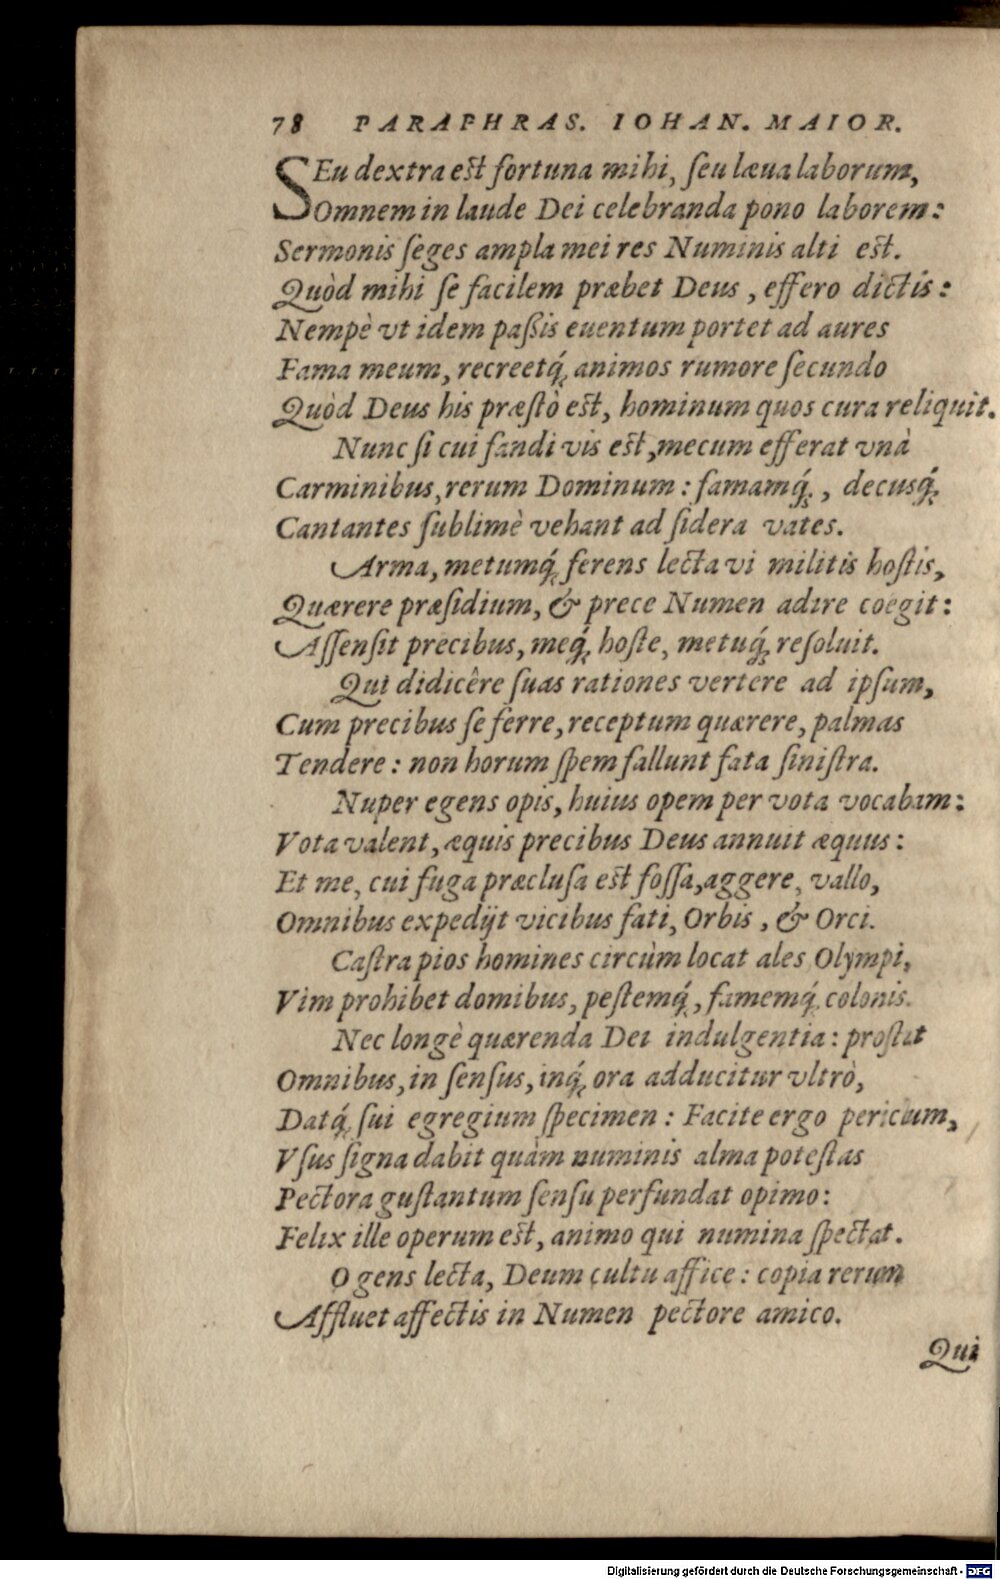 78 PARAPHRAS. IOHAN. MAIOR.
SEu dextra est fortuna mihi, ſeu læua laborum,
Somnem in laude Dei celebranda pono laborem:
Sermonis ſeges ampla mei res Numinis alti est.
Quòd mihi ſe facilem præbet Deus, effero dictis:
Nempè vt idem paſsis euentum portet ad aures
Fama meum, recreetq́; animos rumore ſecundo
Quòd Deus his præſtò est, hominum quos cura reliquit.
Nunc ſi cui fandi vis est, mecum efferat vnà
Carminibus, rerum Dominum: famamq́;, decusq́;
Cantantes ſublimè vehant ad ſidera vates.
Arma, metumq́; ferens lecta vi militis hoſtis,
Quærere præſidium, & prece Numen adire coëgit:
Aſſenſit precibus, meq́; hoſte, metuq́; reſoluit.
Qui didicêre ſuas rationes vertere ad ipſum,
Cum precibus ſe ferre, receptum quærere, palmas
Tendere: non horum ſpem fallunt fata ſiniſtra.
Nuper egens opis, huius opem per vota vocabam:
Vota valent, æquis precibus Deus annuit æquus:
Et me, cui fuga præcluſa est foſſa, aggere, vallo,
Omnibus expedijt vicibus fati, Orbis, & Orci.
Caſtra pios homines circùm locat ales Olympi,
Vim prohibet domibus, peſtemq́;, famemq́; colonis.
Nec longè quærenda Dei indulgentia: proſtat
Omnibus, in ſenſus, inq́; ora adducitur vltrò,
Datq́; ſui egregium ſpecimen: Facite ergo periclum,
Vſus ſigna dabit quàm numinis alma poteſtas
Pectora guſtantum ſenſu perfundat opimo:
Felix ille operum est, animo qui numina ſpectat.
O gens lecta, Deum cultu affice: copia rerum
Affluet affectis in Numen pectore amico.
Qui
Digitalisierung gefördert durch die Deutsche Forschungsgemeinschaft - DFG